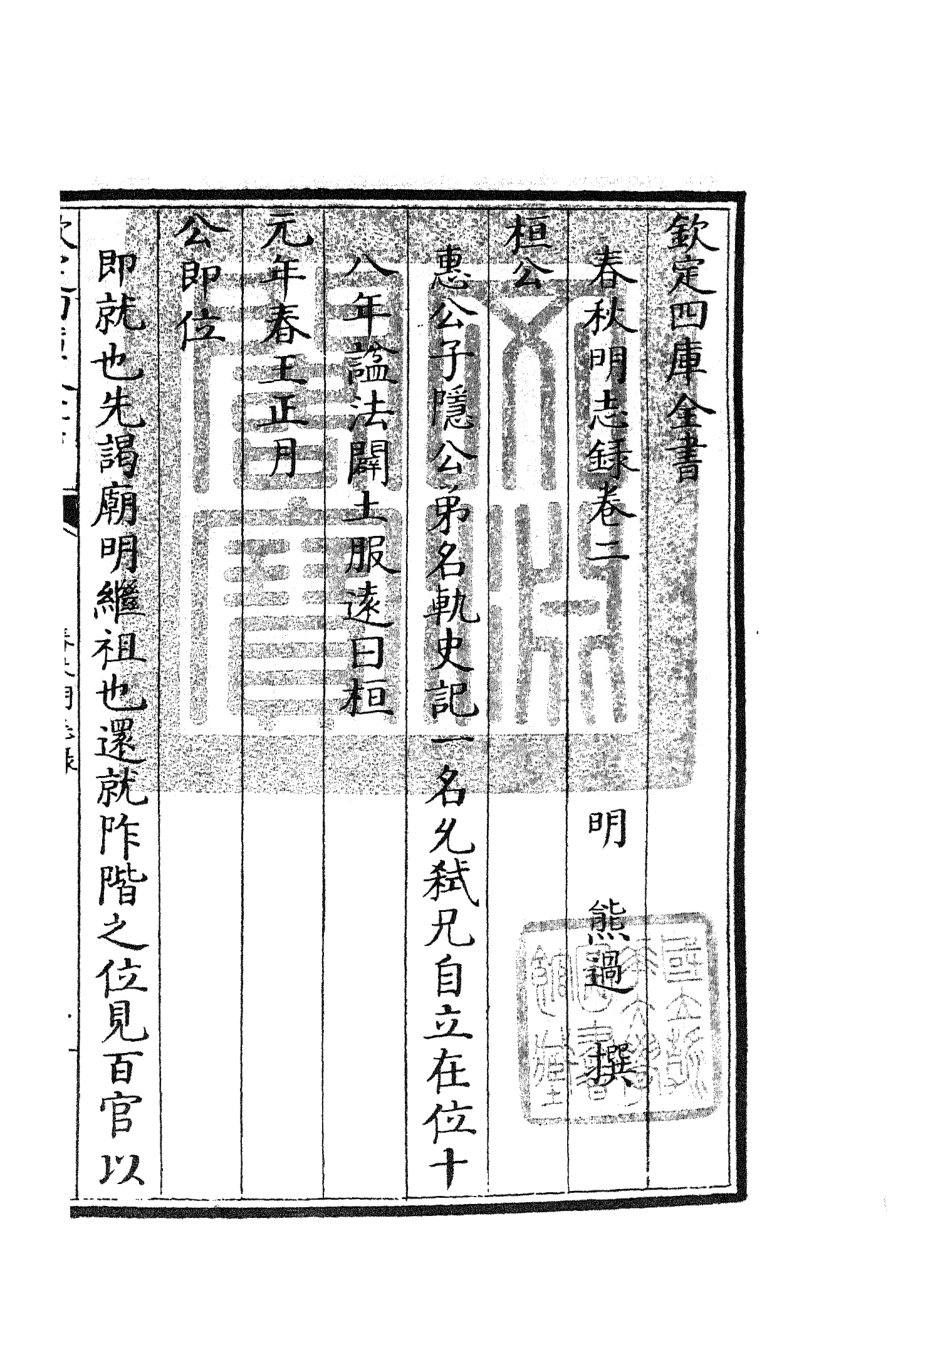 欽定四庫全書
春秋明志録卷二
明 熊過 撰
桓公
惠公子隱公弟名軌史記一名允弑兄自立在位十
八年諡法闢土服遠曰桓
元年春王正月
公即位
即就也先謁廟明繼祖也還就阼階之位見百官以